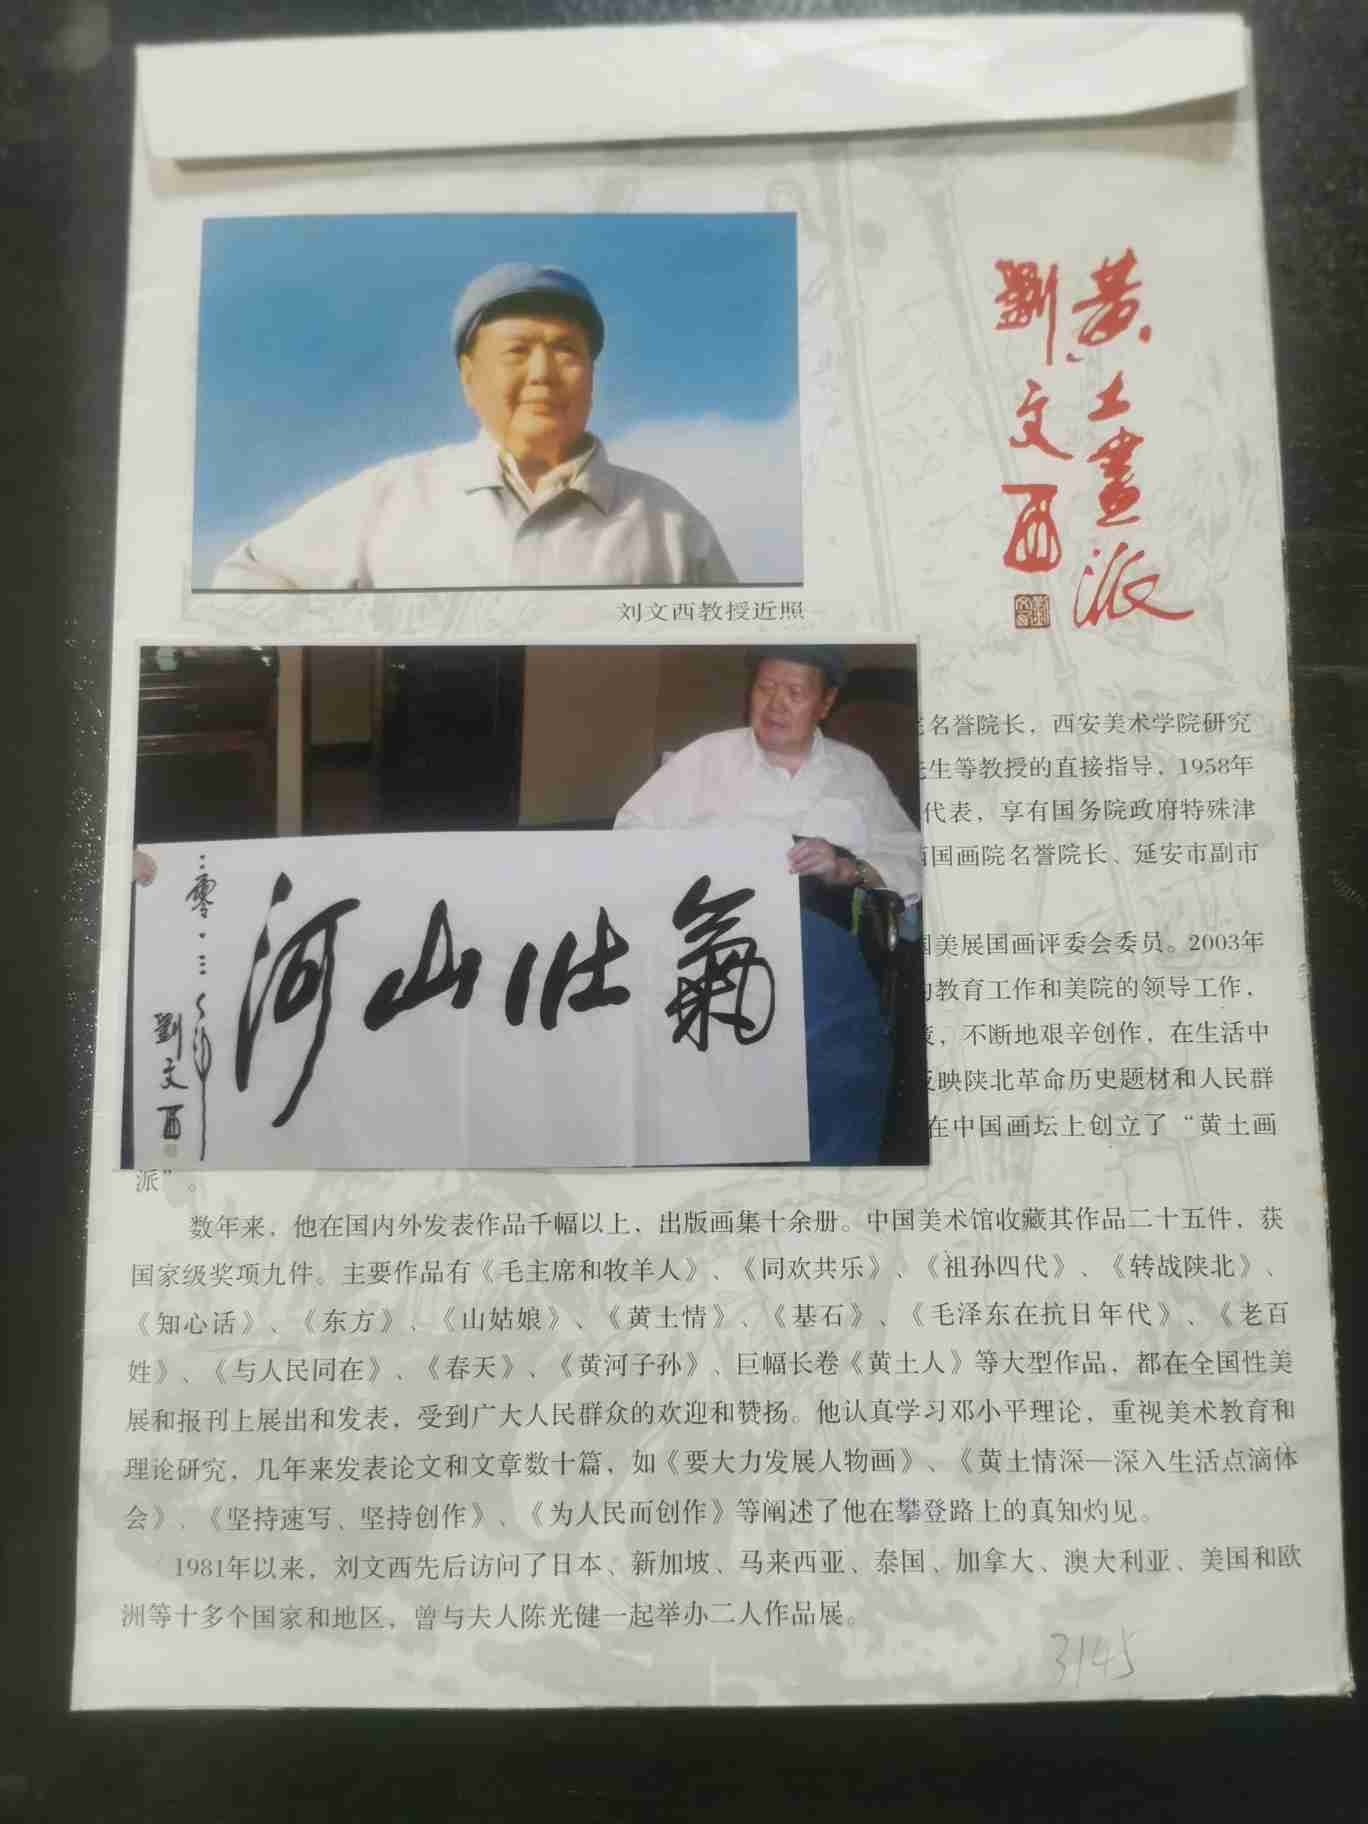 黄土畫派
劉文西
刘文西教授近照
氣壮山河
二零一三年
劉文西
名誉院长，西安美术学院研究
先生等教授的直接指导，1958年
代表，享有国务院政府特殊津
国画院名誉院长、延安市副市
国美展国画评委会委员。2003年
教育工作和美院的领导工作，
，不断地艰辛创作，在生活中
反映陕北革命历史题材和人民群
在中国画坛上创立了“黄土画
派”。
数年来，他在国内外发表作品千幅以上，出版画集十余册。中国美术馆收藏其作品二十五件，获
国家级奖项九件。主要作品有《毛主席和牧羊人》、《同欢共乐》、《祖孙四代》、《转战陕北》、
《知心话》、《东方》、《山姑娘》、《黄土情》、《基石》、《毛泽东在抗日年代》、《老百
姓》、《与人民同在》、《春天》、《黄河子孙》、巨幅长卷《黄土人》等大型作品，都在全国性美
展和报刊上展出和发表，受到广大人民群众的欢迎和赞扬。他认真学习邓小平理论，重视美术教育和
理论研究，几年来发表论文和文章数十篇，如《要大力发展人物画》、《黄土情深—深入生活点滴体
会》、《坚持速写、坚持创作》、《为人民而创作》等阐述了他在攀登路上的真知灼见。
1981年以来，刘文西先后访问了日本、新加坡、马来西亚、泰国、加拿大、澳大利亚、美国和欧
洲等十多个国家和地区，曾与夫人陈光健一起举办二人作品展。
3145